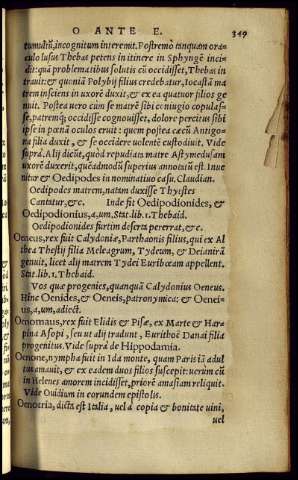 O ANTE E. 349
tumultu, incognitum interemit. Postremò tanquam ora-
culo iusus Thebas petens in itinere in Sphyngē inci-
dit: quā problematibus solutis cū occidisset, Thebas in
trauit: & quoniā Polybij filius credebatur, Iocastā ma
trem insciens in uxorē duxit, & ex ea quatuor filios ge
nuit. Postea uero cum se matrē sibi coniugio copulas-
se, patremq; occidisse cognouisset, dolore percitus sibi
ipse in pœnā oculos eruit: quem postea cæcū Antigo-
ne filia duxit, & se occidere uolentē custodiuit. Vide
suprà. Alij dicūt, quòd repudiata matre Astymedusam
uxorē duxerit, quē admodū superius annotauī est. Inue
nitur & Oedipodes in nominatiuo casu. Claudian.
Oedipodes matrem, natam duxisse Thyestes
Cantatur, &c. Inde fit Oedipodionides, &
Oedipodionius, a, um. Stat. lib. 1. Thebaid.
Oedipodionides furtim deserta pererrat, &c.
Oeneus, rex fuit Calydoniæ, Parthaonis filius, qui ex Al
thea Thestij filia Meleagrum, Tydeum, & Deianirā
genuit, licet alij matrem Tydei Euribœam appellent.
Stat. lib. 1. Thebaid.
Vos quæ progenies, quanquā Calydonius Oeneus.
Hinc Oenides, & Oeneis, patronymica: & Oenei-
us, a, um, adiect.
Oenomaus, rex fuit Elidis & Pisæ, ex Marte & Har
pina Asopi, seu ut alij tradunt, Eurithoë Danai filia
progenitus. Vide suprà de Hippodamia.
Oenone, nympha fuit in Ida monte, quam Paris iā adul
tus amauit, & ex eadem duos filios suscepit: uerum cū
in Helenes amorem incidisset, priorē amasiam reliquit.
Vide Ouidium in eorundem epistolis.
Oenotria, dicta est Italia, uel à copia & bonitate uini,
uel